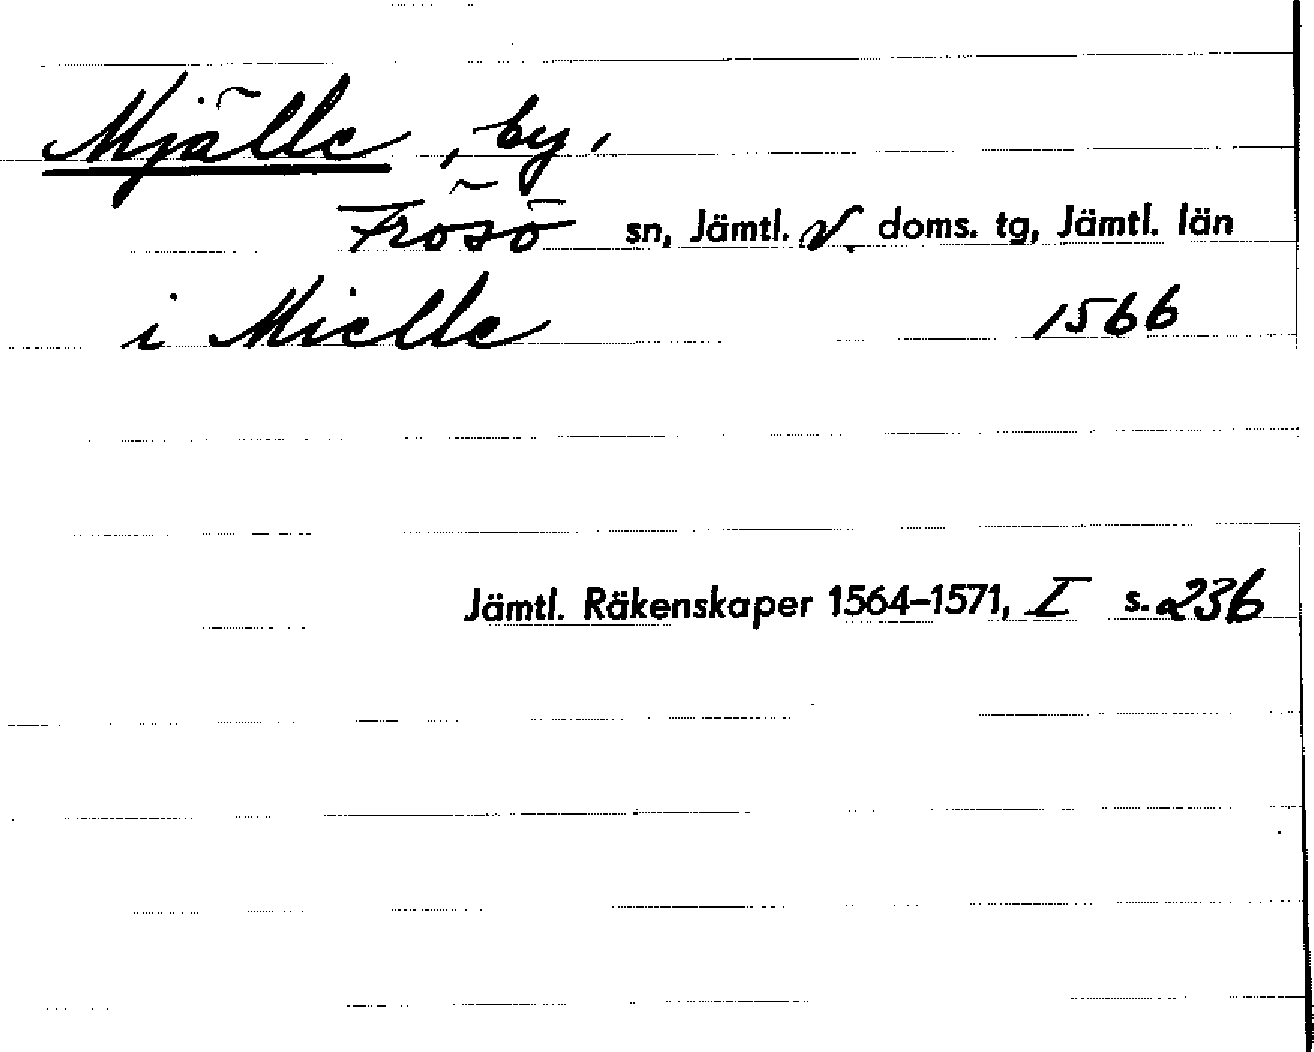 Mjälle, by,
Frösö sn, Jämtl. v. doms. tg, Jämtl. län
i Mielle 1566
Jämtl. Räkenskaper 1564-1571, I s. 236